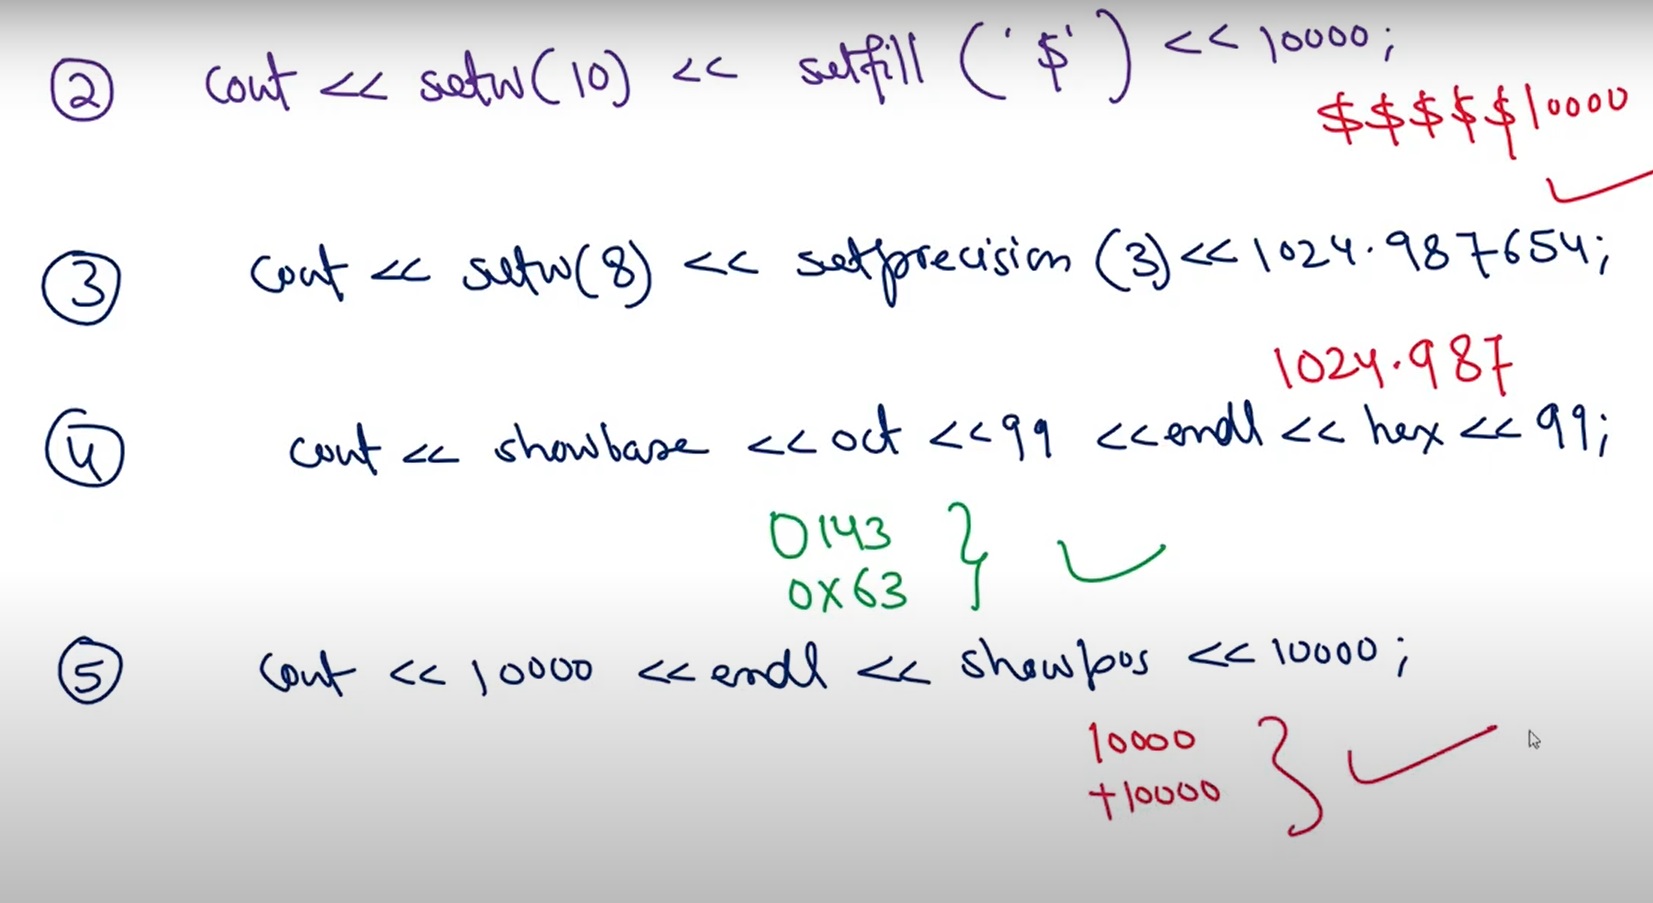 ② cout << setw(10) << setfill ('$') << 10000;
$$$$$10000
③ cout << setw(8) << setprecision (3) << 1024.987654;
1024.987
④ cout << showbase << oct << 99 << endl << hex << 99;
0143
0x63
⑤ cout << 10000 << endl << showpos << 10000;
10000
+10000